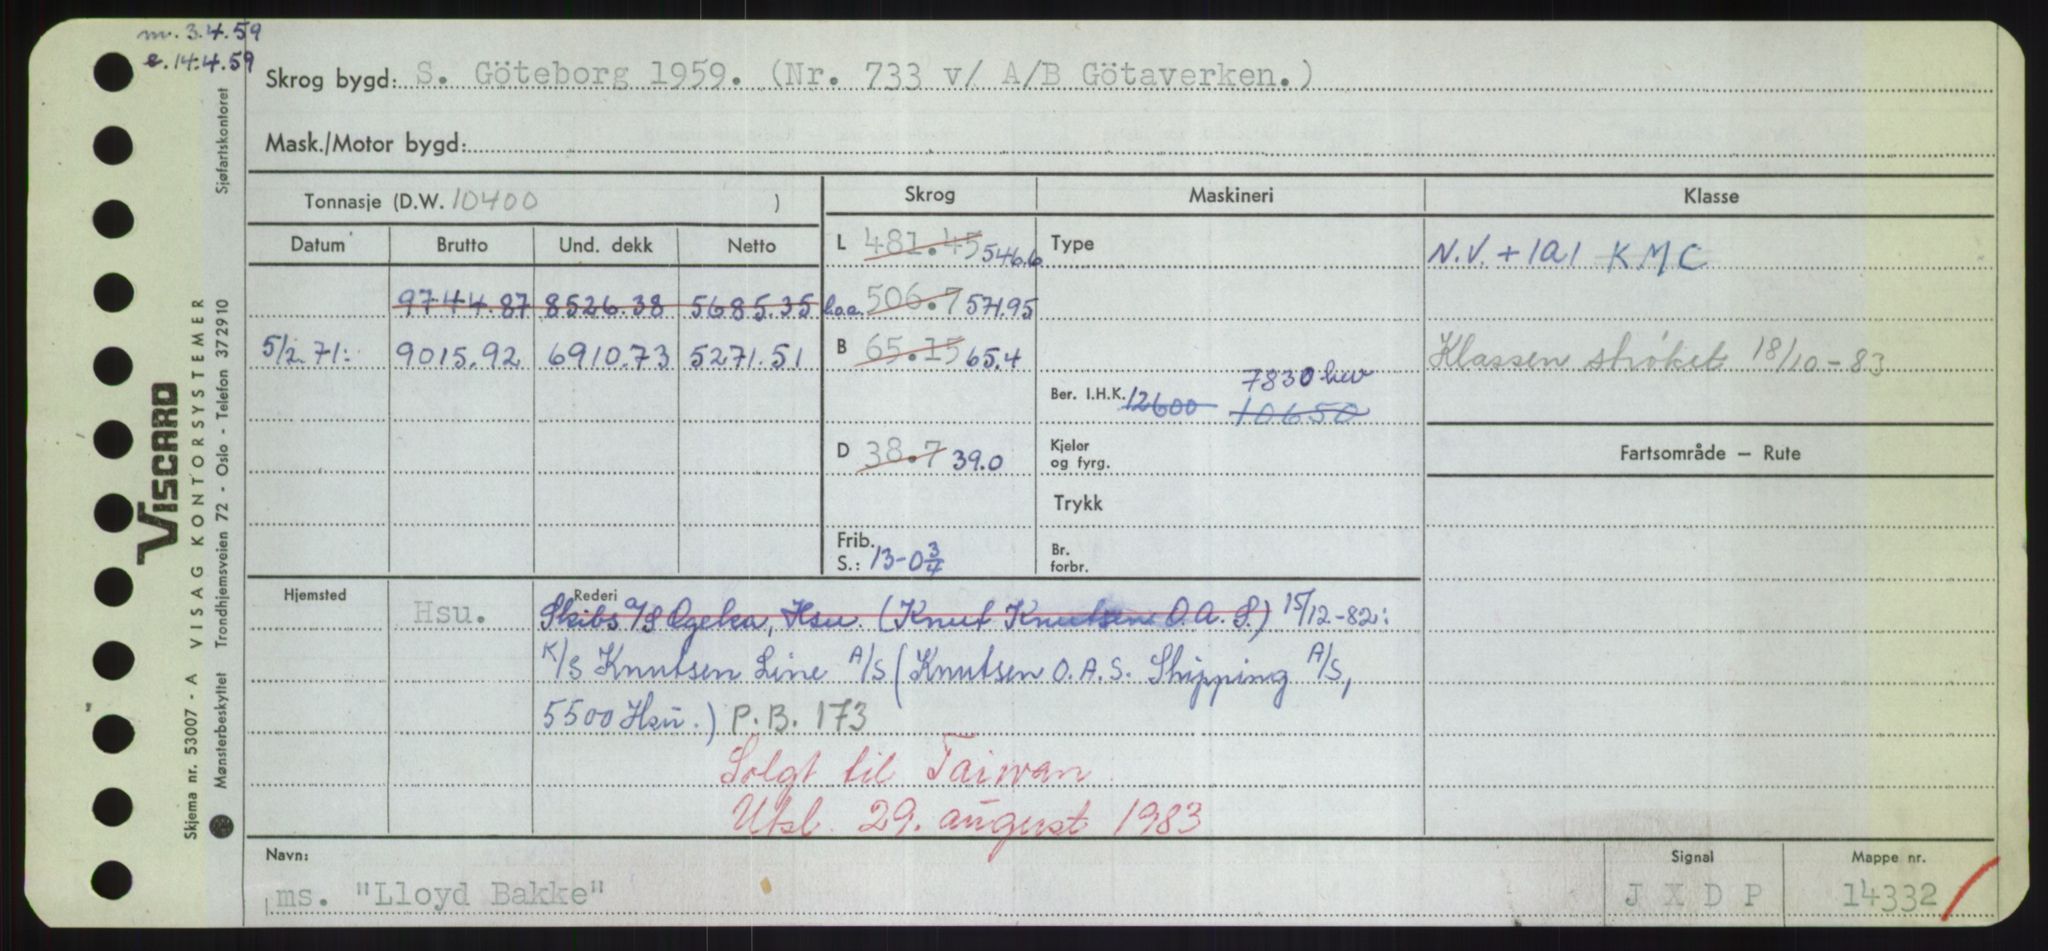 m. 3.4.59
e. 14.4.59
Skrog bygd: S. Göteborg 1959. (Nr. 733 v/ A/B Götaverken.)
Mask./Motor bygd:
Tonnasje (D.W. 10400 )
Skrog
Maskineri
Klasse
Datum Brutto Und. dekk Netto
9744.87 8526.38 5685.35
5/2.71: 9015.92 6910.73 5271.51
L 481.45 546.6
l.o.a. 506.7 571.95
B 65.15 65.4
D 38.7 39.0
Frib.
S.: 13-0 3/4
Type
7830 hkv
Ber. I.H.K. 12600 10650
Kjeler
og fyrg.
Trykk
Br.
forbr.
N.V. + 1A1 KMC
Klassen strøket 18/10-83
Fartsområde — Rute
Hjemsted
Hsu.
Rederi
Skibs A/S Ogeka, Hsu. (Knut Knutsen O.A.S.) 15/12-82:
K/S Knutsen Line A/S (Knutsen O.A.S. Shipping A/S,
5500 Hsu.) P.B. 173
Solgt til Taiwan
Utsl. 29. august 1983
Navn:
ms. "Lloyd Bakke"
Signal
J X D P
Mappe nr.
14332
VISCARD
VISAG KONTORSYSTEMER
Skjema nr. 53007 - A
Mønsterbeskyttet Trondhjemsveien 72 - Oslo - Telefon 372910 Sjøfartskontoret